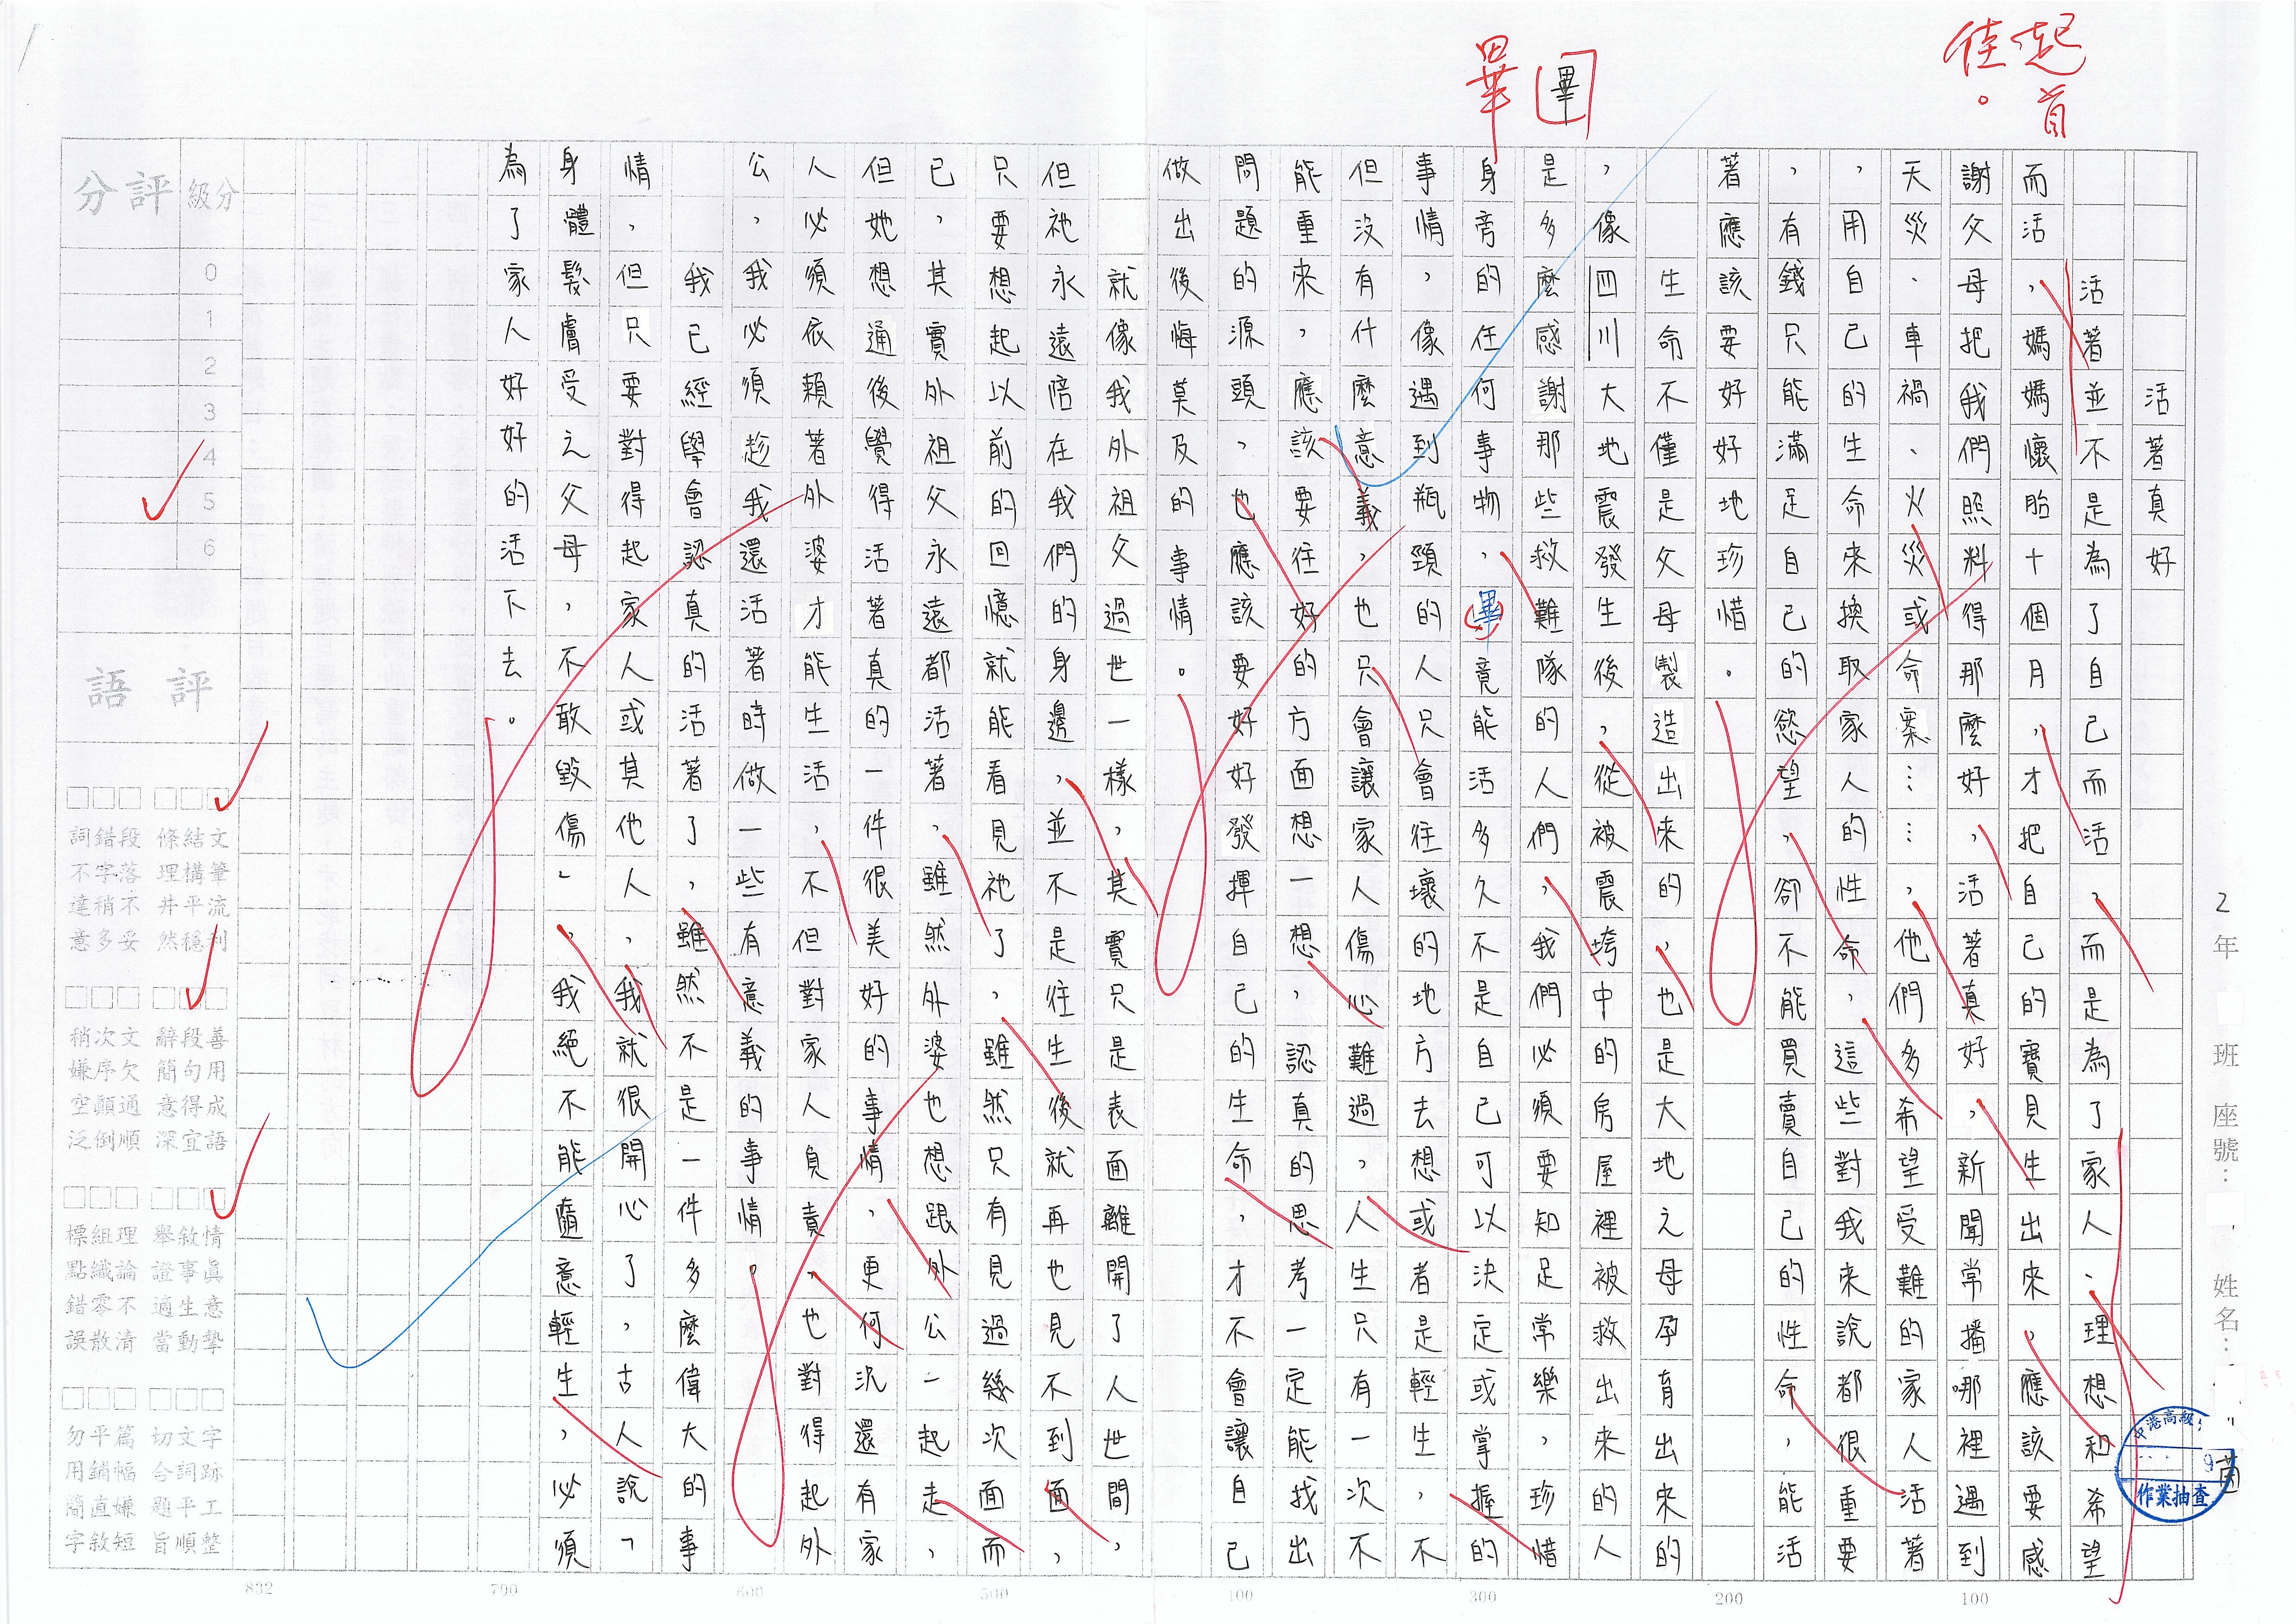 起首
佳。
畢
畢
活著真好
活著並不是為了自己而活，而是為了家人、理想和希望
而活，媽媽懷胎十個月，才把自己的寶貝生出來，應該要感
謝父母把我們照料得那麼好，活著真好，新聞常播哪裡遇到
天災、車禍、火災或命案……，他們多希望受難的家人活著
，用自己的生命來換取家人的性命，這些對我來說都很重要
，有錢只能滿足自己的慾望，卻不能買賣自己的性命，能活
著應該要好好地珍惜。
生命不僅是父母製造出來的，也是大地之母孕育出來的
，像四川大地震發生後，從被震垮中的房屋裡被救出來的人
是多麼感謝那些救難隊的人們，我們必須要知足常樂，珍惜
身旁的任何事物，畢竟能活多久不是自己可以決定或掌握的
事情，像遇到瓶頸的人只會往壞的地方去想或者是輕生，不
但沒有什麼意義，也只會讓家人傷心難過，人生只有一次不
能重來，應該要往好的方面想一想，認真的思考一定能找出
問題的源頭，也應該要好好發揮自己的生命，才不會讓自己
做出後悔莫及的事情。
就像我外祖父過世一樣，其實只是表面離開了人世間，
但祂永遠陪在我們的身邊，並不是往生後就再也見不到面，
只要想起以前的回憶就能看見祂了，雖然只有見過幾次面而
已，其實外祖父永遠都活著，雖然外婆也想跟外公一起走，
但她想通後覺得活著真的一件很美好的事情，更何況還有家
人必須依賴著外婆才能生活，不但對家人負責，也對得起外
公，我必須趁我還活著時做一些有意義的事情。
我已經學會認真的活著了，雖然不是一件多麼偉大的事
情，但只要對得起家人或其他人，我就很開心了，古人說「
身體髮膚受之父母，不敢毀傷」，我絕不能隨意輕生，必須
為了家人好好的活下去。
2年 班 座號： ，姓名：
中港高級
9
作業抽查
分級 評分
0
1
2
3
4
5
6
評語
文筆流利
結構平穩
條理井然
段落不妥
錯字稍多
詞不達意
善用成語
段句得宜
辭簡意深
文欠通順
次序顛倒
稍嫌空泛
情真意摯
敘事生動
舉證適當
理論不清
組織零散
標點錯誤
字跡工整
文詞平順
切合題旨
篇幅嫌短
平鋪直敘
勿用簡字
100
200
300
400
500
600
700
832